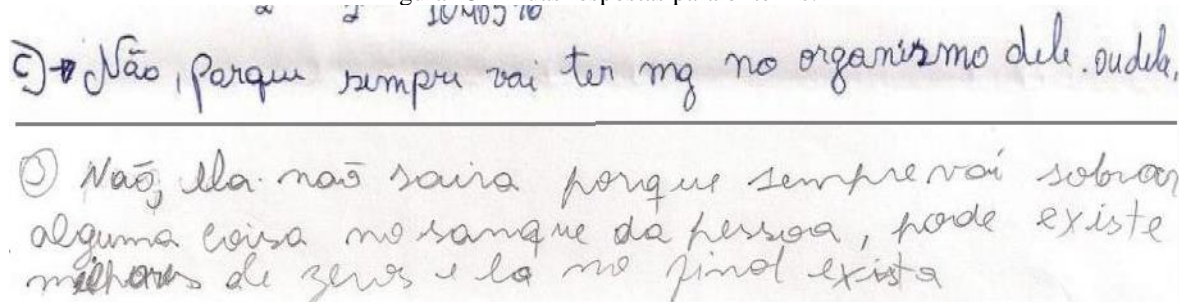 c) Não, Porque sempre vai ter mg no organismo dele. ou dela,
c) Não, Ela não saira porque sempre vai sobrar
alguma coisa no sangue da pessoa, pode existe
milhares de zeros e la no final exista